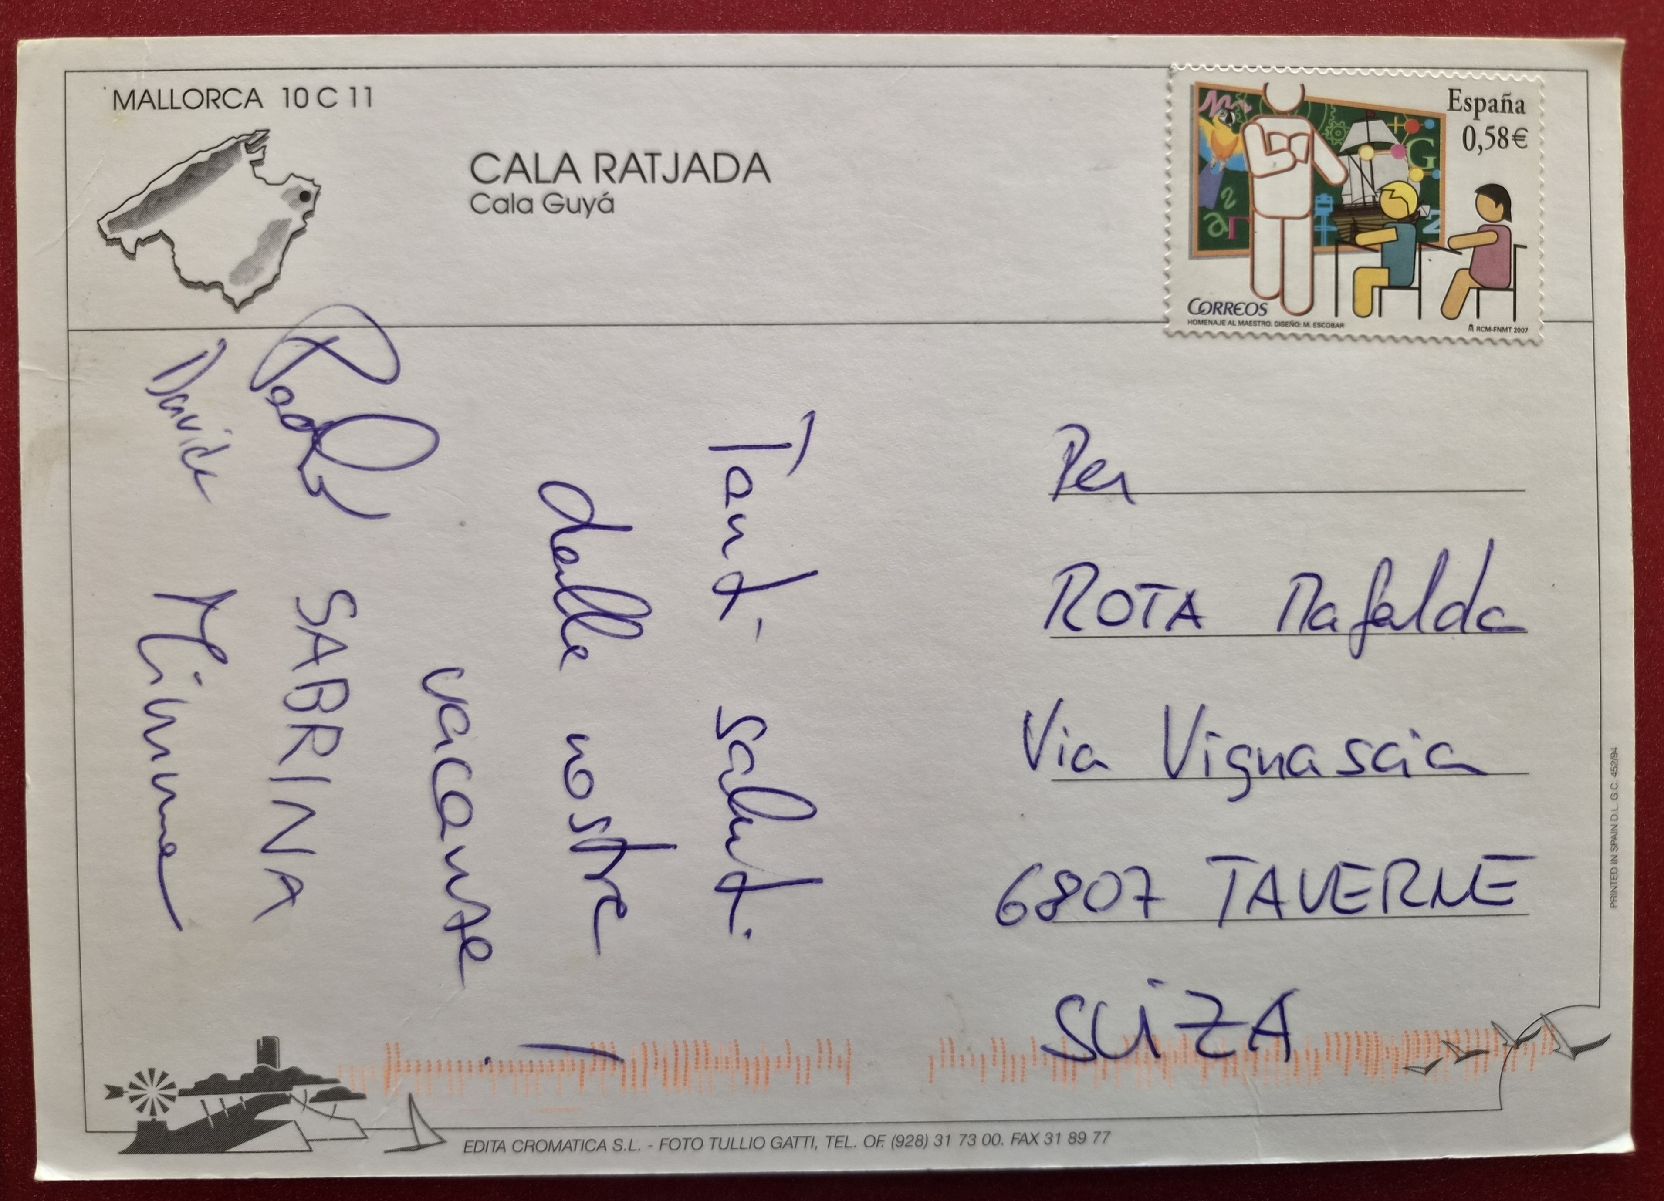 MALLORCA 10 C 11
CALA RATJADA
Cala Guyá
España
0,58€
CORREOS
HOMENAJE AL MAESTRO. DISEÑO: M. ESCOBAR
RCM-FNMT 2007
Tanti saluti
dalle nostre
vacanze!
SABRINA
Davide Mimma
Per
ROTA Mafalda
Via Vignascia
6807 TAVERNE
SUIZA
PRINTED IN SPAIN D.L. G.C. 452/94
EDITA CROMATICA S.L. - FOTO TULLIO GATTI, TEL. OF. (928) 31 73 00. FAX 31 89 77